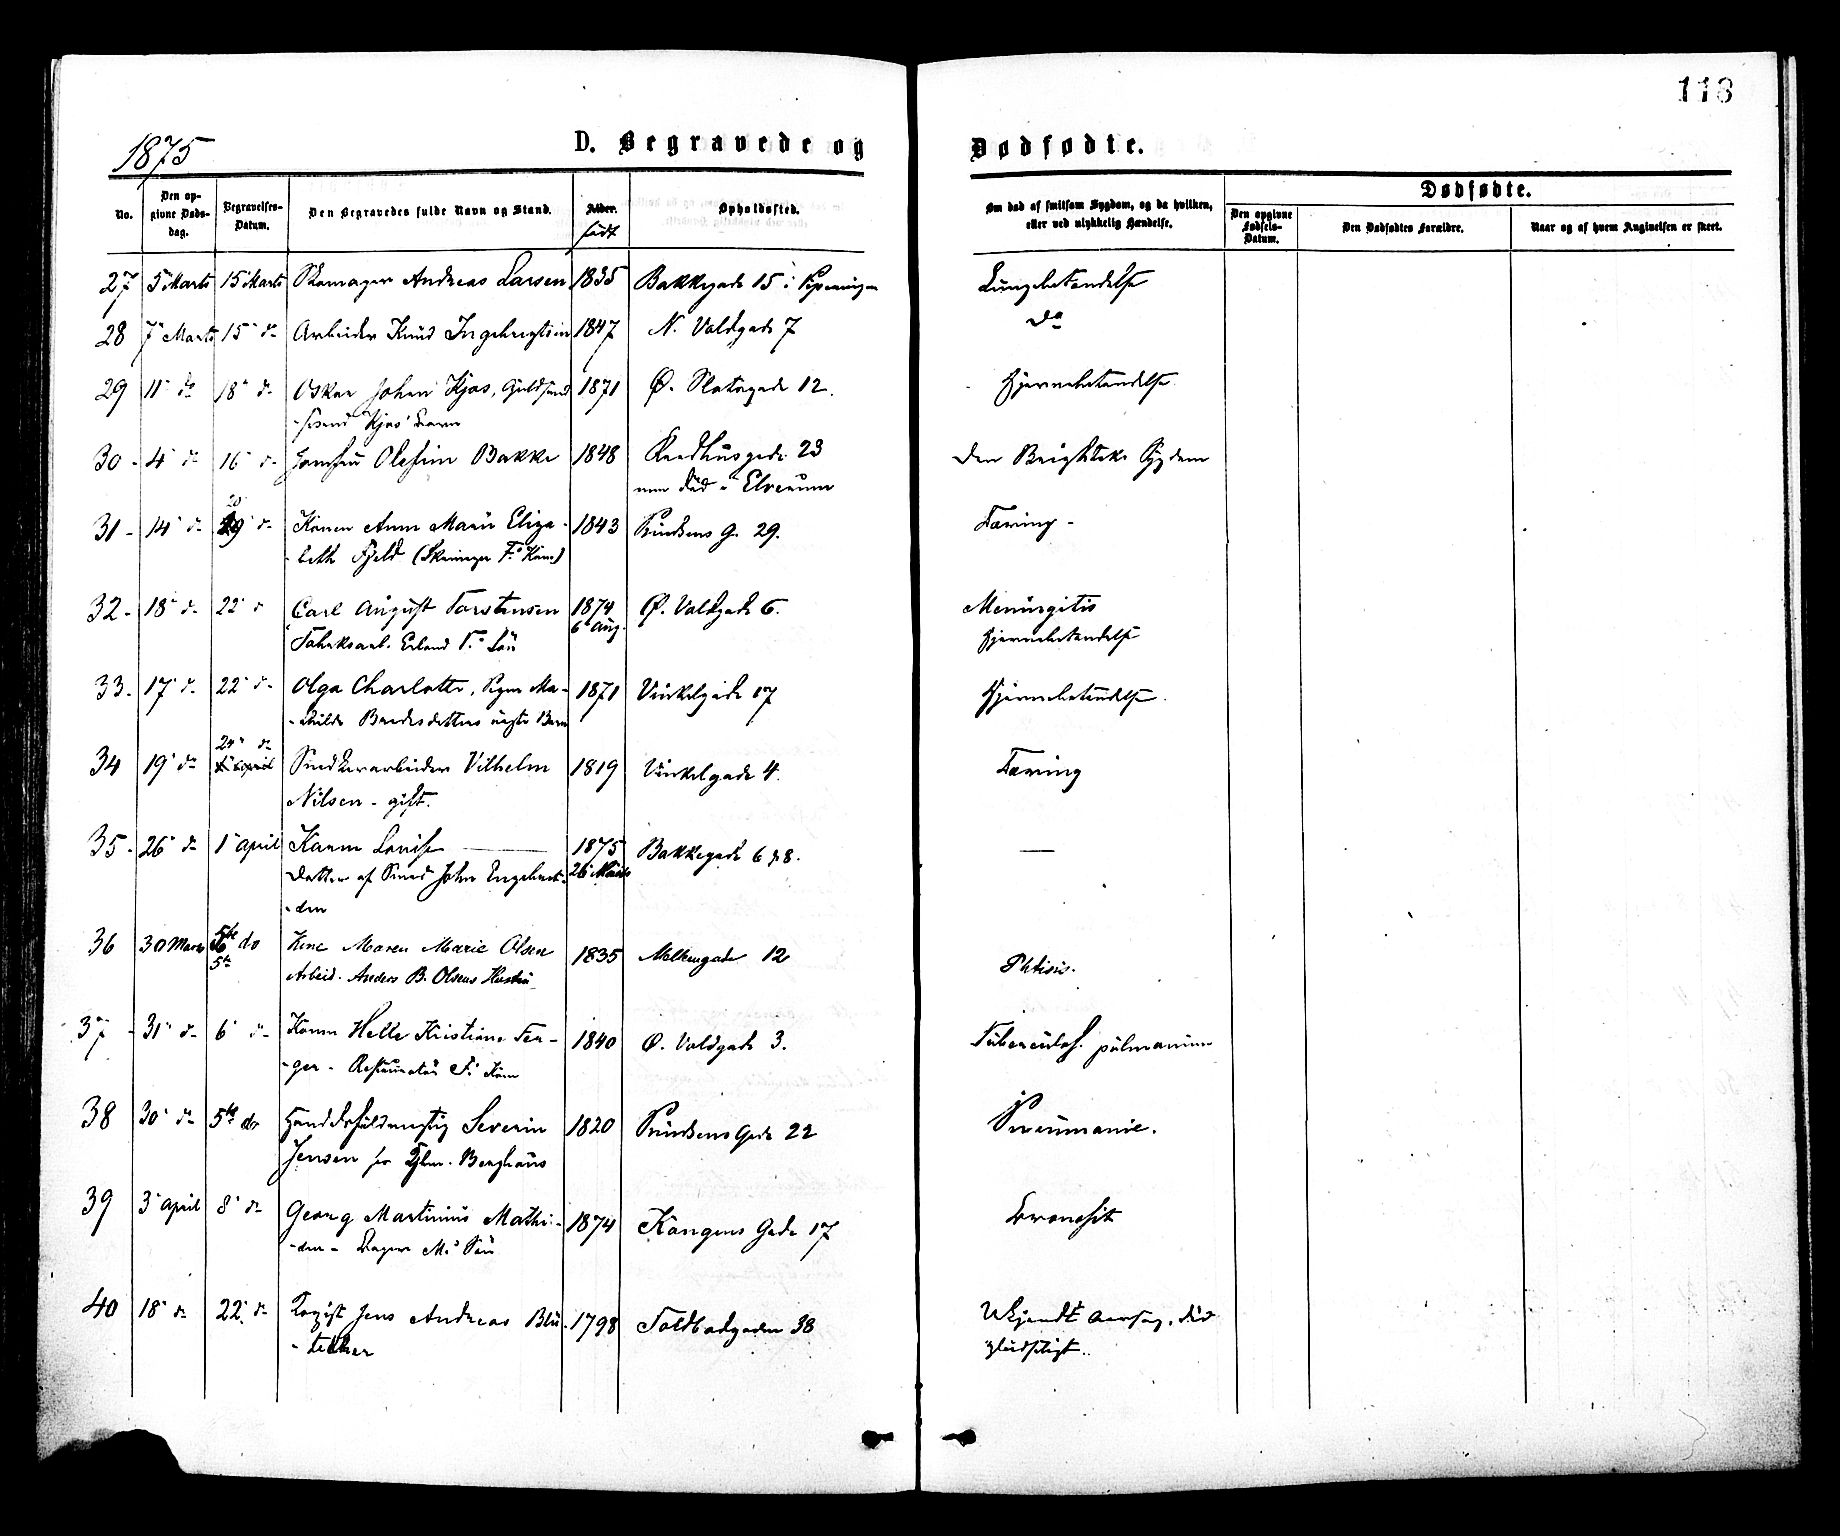 118
1875
D. Begravede og Dødfødte.
No.
Den opgivne Dødsdag.
Begravelses-Datum.
Den Begravedes fulde Navn og Stand.
Alder. født
Opholdssted.
Om død af smitsom Sygdom, og da hvilken, eller ved ulykkelig Hændelse.
Dødfødte.
Den opgivne Fødsels-Datum.
Den Dødfødtes Forældre.
Naar og af hvem Angivelsen er skeet.
27 5 Marts 15 Marts Skomager Andreas Larsen 1835 Bakkegade 15 i Lungebetændelse
28 7 Marts 15 do Arbeider Knud Ingebrigtsen 1847 N. Voldgade 7 Do
29 11 do 18 do Oskar Johan Kjos, Guldsmed 1871 Ø. Slotsgade 12. Hjernebetændelse
Kjos Barn
30 4 do 16 do Jomfru Olefine Bakke 1848 Raadhusgade 23 Den Brightske Sygdom
men død i Elverum
31 14 do 20 do Konen Anne Marie Eliza- 1843 Prindsens G. 29. Tæring
beth Fjeld (Skomager F.s Kone)
32 18 do 22 do Carl August Torstensen 1874 Ø. Voldgade 6. Meningitis
6 Aug. Hjernebetændelse
Fabrikarb. Erland T.s Søn
33 17 do 22 do Olga Charlotte, Pigen Ma- 1871 Vinkelgade 17 Hjernebetændelse
thilde uægte Barn
34 19 do 24 do Snedkerarbeider Vilhelm 1819 Vinkelgade 4. Tæring
Nilsen - gift.
35 26 do 1 April Karen Lovise 1875 Bakkegade 6 & 8. —
26 Marts
Datter af Smed John Engebret-
sen
36 30 Marts 5te do Kone Maren Marie Olsen 1835 Møllergade 12 Phtisis.
Arbeid. Anders B. Olsens Hustru
37 31 do 6 do Konen Helle Kristiane Fer- 1840 Ø. Voldgade 3. Tuberculos. pulmonum
ger - Restauratør F.s Kone
38 30 do 5te do Handelsfuldmægtig Severin 1820 Prindsens Gade 22 Pneumonie.
Jensen for Kjbm. Berghaus
39 3 April 8 do Georg Martinius Mathi- 1874 Kongens Gade 17 Bronchit
sen - Bager M.s Søn
40 18 do 22 do Jens Andreas Blü- 1798 Toldbodgaden 38 Ukjendt Aarsag, død
techer pludseligt.